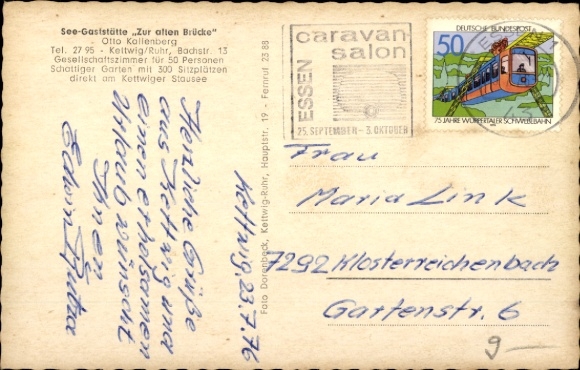 See-Gaststätte „Zur alten Brücke"
Otto Kallenberg
Tel. 27 95 - Kettwig/Ruhr, Bachstr. 13
Gesellschaftszimmer für 50 Personen
Schattiger Garten mit 300 Sitzplätzen
direkt am Kettwiger Stausee
Kettwig, 23.7.76
Herzliche Grüße
aus Kettwig und
einen erholsamen
Urlaub wünscht
Ihnen
Edwin
Foto Dorenbeck, Kettwig-Ruhr, Hauptstr. 19 - Fernruf 23 88
ESSEN
caravan-
salon
25. SEPTEMBER - 3. OKTOBER
DEUTSCHE BUNDESPOST
50
75 JAHRE WUPPERTALER SCHWEBEBAHN
Frau
Maria Link
7292 Klosterreichenbach
Gartenstr. 6
9 —